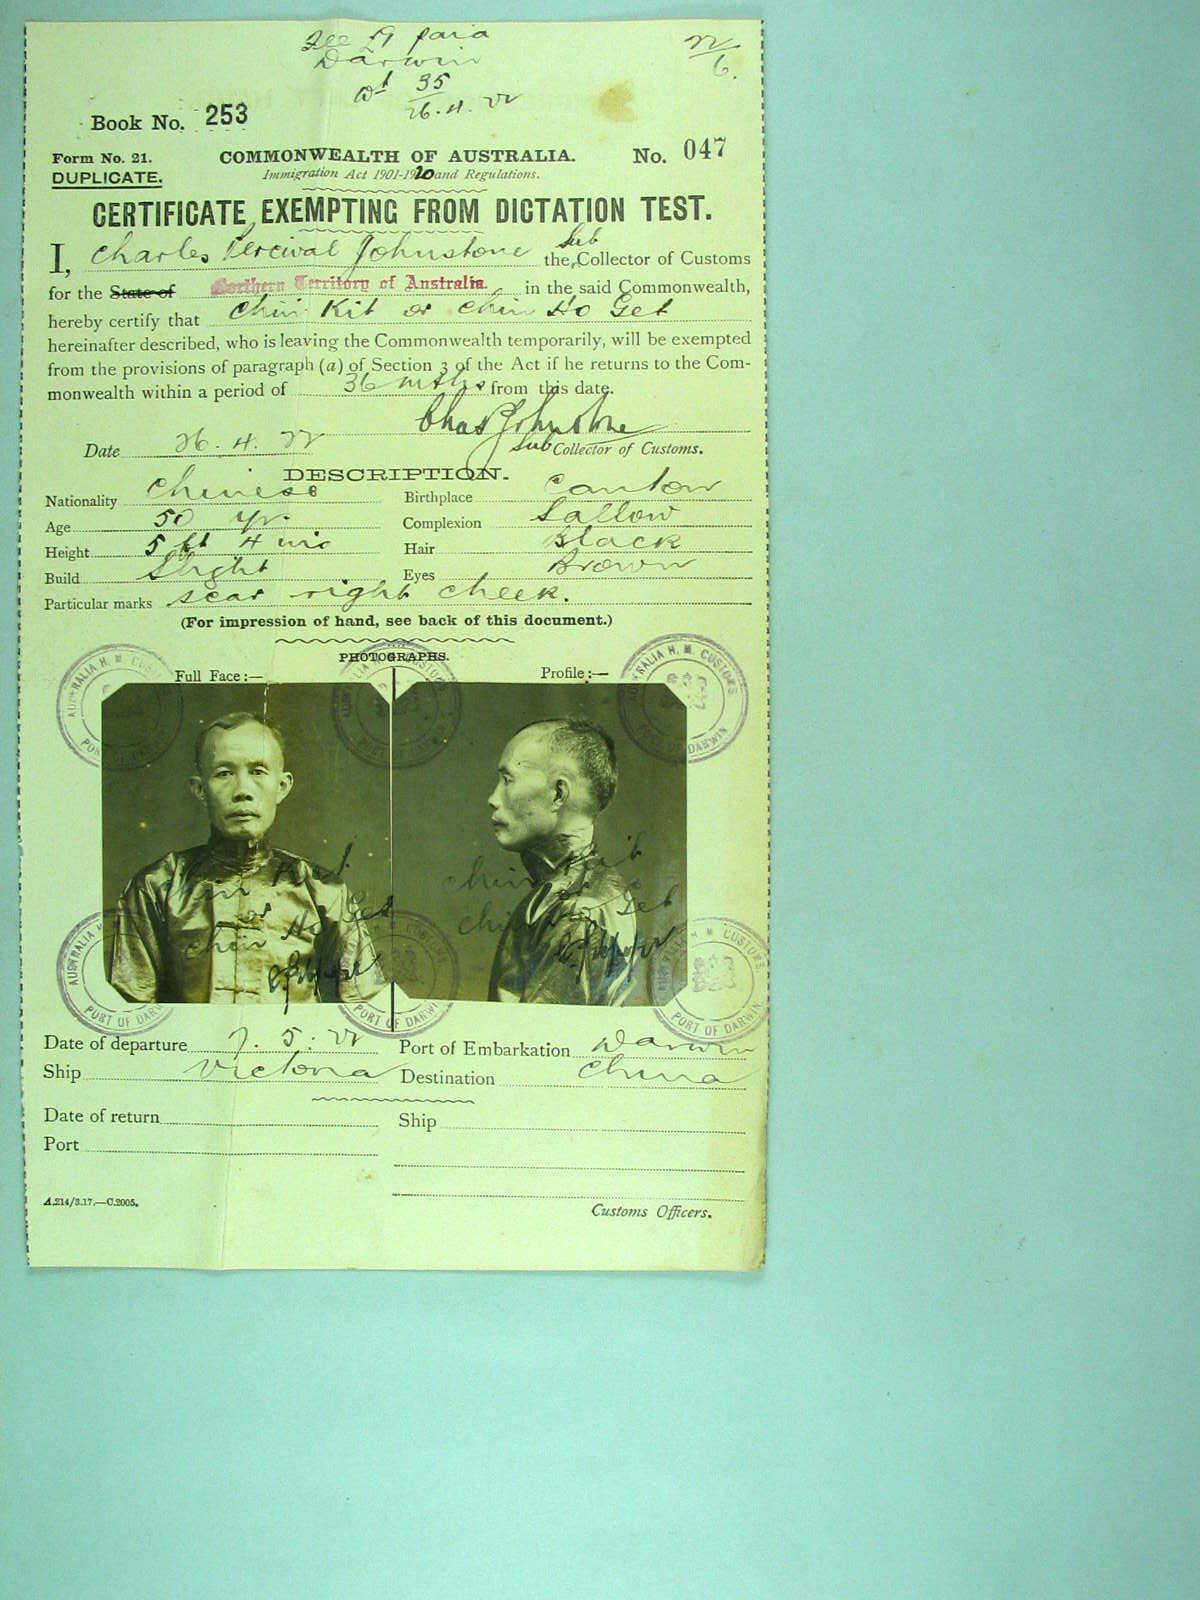 Fee £1 paid
Darwin
No. 35
26.4.22
22/6.
Book No. 253
Form No. 21.
COMMONWEALTH OF AUSTRALIA.
No. 047
DUPLICATE.
Immigration Act 1901-1920 and Regulations.
CERTIFICATE EXEMPTING FROM DICTATION TEST.
I, Charles Percival Johnstone the Sub Collector of Customs
for the State of Northern Territory of Australia. in the said Commonwealth,
hereby certify that Chin Kit or Chin Ho Get
hereinafter described, who is leaving the Commonwealth temporarily, will be exempted
from the provisions of paragraph (a) of Section 3 of the Act if he returns to the Com-
monwealth within a period of 36 mths from this date.
Chas Johnstone
Date 26.4.22
Sub Collector of Customs.
DESCRIPTION.
Nationality Chinese Birthplace Canton
Age 50 yrs. Complexion Sallow
Height 5 ft 4 ins Hair Black
Build Slight Eyes Brown
Particular marks scar right cheek.
(For impression of hand, see back of this document.)
PHOTOGRAPHS.
Full Face :— Profile :—
AUSTRALIA H. M. CUSTOMS PORT OF DARWIN
AUSTRALIA H. M. CUSTOMS PORT OF DARWIN
AUSTRALIA H. M. CUSTOMS PORT OF DARWIN
Chin Kit
or
Chin Ho Get
Chin Kit
or
Chin Ho Get
AUSTRALIA H. M. CUSTOMS PORT OF DARWIN
AUSTRALIA H. M. CUSTOMS PORT OF DARWIN
AUSTRALIA H. M. CUSTOMS PORT OF DARWIN
Date of departure 7.5.22 Port of Embarkation Darwin
Ship Victoria Destination China
Date of return Ship
Port
A.214/3.17.—C.2005.
Customs Officers.